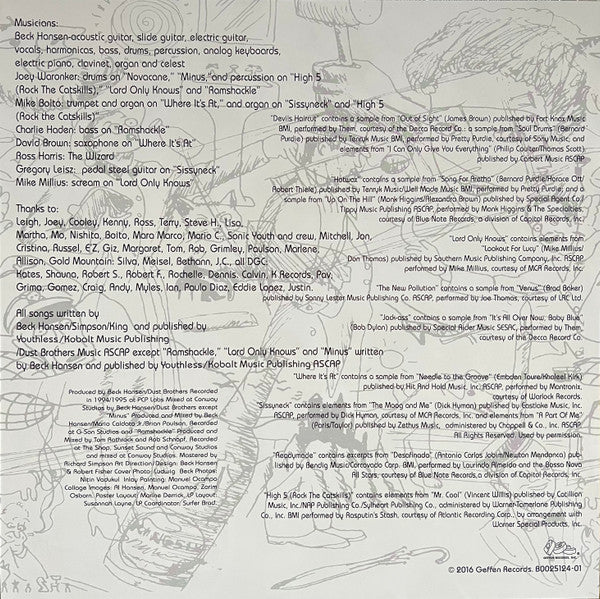 Musicians:
Beck Hansen-acoustic guitar, slide guitar, electric guitar,
vocals, harmonicas, bass, drums, percussion, analog keyboards,
electric piano, clavinet, organ and celest
Joey Waronker: drums on "Novacane," "Minus," and percussion on "High 5
(Rock The Catskills)," "Lord Only Knows" and "Ramshackle"
Mike Boito: trumpet and organ on "Where It's At," and organ on "Sissyneck" and "High 5
(Rock the Catskills)"
Charlie Haden: bass on "Ramshackle"
David Brown: saxophone on "Where It's At"
Ross Harris: The Wizard
Gregory Leisz: pedal steel guitar on "Sissyneck"
Mike Millius: scream on "Lord Only Knows"
Thanks to:
Leigh, Joey, Cooley, Kenny, Ross, Terry, Steve H., Lisa,
Martha, Mo, Nishita, Boito, Mara Marco, Mario C., Sonic Youth and crew, Mitchell, Jon,
Cristina, Russel, EZ, Giz, Margaret, Tom, Rob, Grimley, Paulson, Marlene,
Allison, Gold Mountain: Silva, Meisel, Bethann, J.C., all DGC:
Kates, Shauna, Robert S., Robert F., Rochelle, Dennis, Calvin, K Records, Pav,
Grimo, Gomez, Craig, Andy, Myles, Ian, Paula Diaz, Eddie Lopez, Justin.
All songs written by
Beck Hansen/Simpson/King and published by
Youthless/Kobalt Music Publishing
/Dust Brothers Music ASCAP except "Ramshackle," "Lord Only Knows" and "Minus" written
by Beck Hansen and published by Youthless/Kobalt Music Publishing ASCAP
Produced by Beck Hansen/Dust Brothers Recorded
in 1994/1995 at PCP Labs Mixed at Conway
Studios by Beck Hansen/Dust Brothers except
"Minus" Produced and Mixed by Beck
Hansen/Mario Caldato Jr./Brian Paulson. Recorded
at G-Son Studios and "Ramshackle" Produced and
Mixed by Tom Rothrock and Rob Schnapf, Recorded
at The Shop, Sunset Sound and Conway Studios
and mixed at Conway Studios. Mastered by
Richard Simpson Art Direction/Design: Beck Hansen
& Robert Fisher Cover Photo: Ludwig Back Photo:
Nitin Vadukul Inlay Painting: Manuel Ocampo
Collage Images: Al Hansen, Manuel Ocampo, Zarim
Osborn. Poster Layout: Marine Derrick, LP Layout:
Susannah Layne/LP Coordinator: Surfer Brad.
"Devils Haircut" contains a sample from "Out of Sight" (James Brown) published by Fort Knox Music
BMI, performed by Them, courtesy of the Decca Record Co.: a sample from "Soul Drums" (Bernard
Purdie) published by Tenryk Music BMI, performed by Pretty Purdie, courtesy of Sony Music, and
elements from "I Can Only Give You Everything" (Philip Coulter/Thomas Scott)
published by Carbert Music ASCAP
"Hotwax" contains a sample from "Song For Aretha" (Bernard Purdie/Horace Ott/
Robert Thiele) published by Tenryk Music/Well Made Music BMI, performed by Pretty Purdie, and a
sample from "Up On The Hill" (Monk Higgins/Alexandra Brown) published by Special Agent Co./
Tippy Music Publishing ASCAP, performed by Monk Higgins & The Specialties,
courtesy of Blue Note Records, a division of Capitol Records, Inc.
"Lord Only Knows" contains elements from
"Lookout For Lucy" (Mike Millius/
Don Thomas) published by Southern Music Publishing Company, Inc. ASCAP
performed by Mike Millius, courtesy of MCA Records, Inc.
"The New Pollution" contains a sample from "Venus" (Brad Baker)
published by Sonny Lester Music Publishing Co. ASCAP, performed by Joe Thomas, courtesy of LRC Ltd.
"Jack-ass" contains a sample from "It's All Over Now, Baby Blue"
(Bob Dylan) published by Special Rider Music SESAC, performed by Them,
courtesy of the Decca Record Co.
"Where It's At" contains a sample from "Needle to the Groove" (Embden Toure/Khaleel Kirk)
published by Hit And Hold Music, Inc. ASCAP, performed by Mantronix,
courtesy of Warlock Records.
"Sissyneck" contains elements from "The Moog and Me" (Dick Hyman) published by Eastlake Music, Inc.
ASCAP, performed by Dick Hyman, courtesy of MCA Records, Inc. and elements from "A Part Of Me"
(Paris/Taylor) published by Zethus Music, administered by Chappell & Co., Inc. ASCAP.
All Rights Reserved. Used by permission.
"Readymade" contains excerpts from "Desafinado" (Antonio Carlos Jobim/Newton Mendonca) pub-
lished by Bendig Music/Corcovado Corp. BMI, performed by Laurindo Almeida and the Bossa Nova
All Stars, courtesy of Blue Note Records, a division of Capitol Records, Inc.
"High 5 (Rock The Catskills)" contains elements from "Mr. Cool" (Vincent Willis) published by Cotillion
Music, Inc./NAP Publishing Co/Sylheart Publishing Co., administered by Warner-Tamerlane Publishing
Co., Inc. BMI performed by Rasputin's Stash, courtesy of Atlantic Recording Corp., by arrangement with
Warner Special Products, Inc.
© 2016 Geffen Records. B0025124-01